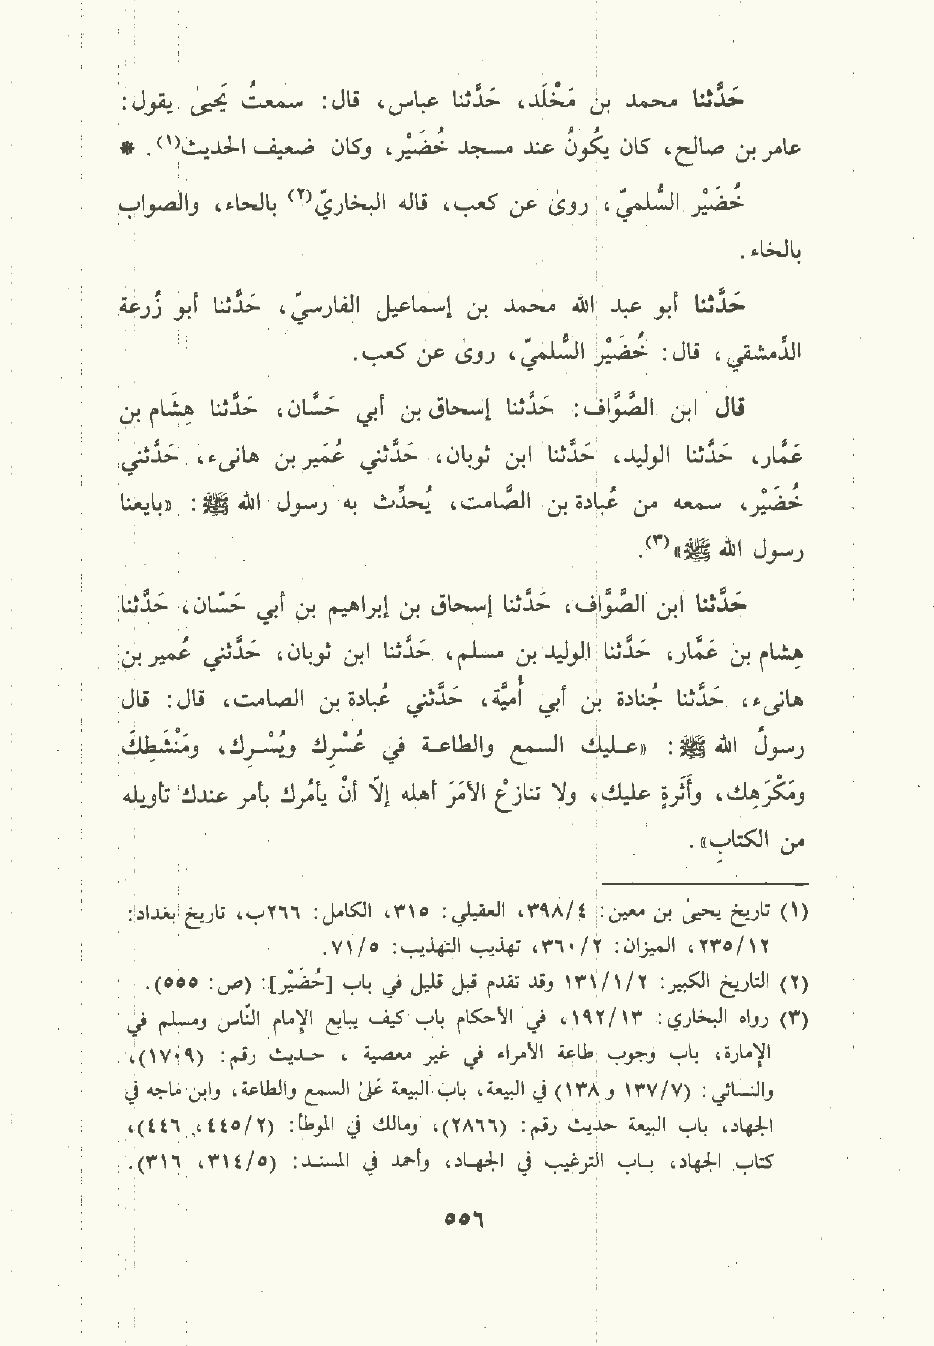 حَدَّثنا محمد بن مَخْلَد، حَدَّثنا عباس، قال: سمعتُ يَحيىٰ يقول:
عامر بن صالح، كان يكُونُ عند مسجد خُضَيْر، وكان ضعيف الحديث(١). *
خُضَيْر السُّلميّ، روىٰ عن كعب، قاله البخاريّ(٢) بالحاء، والصواب
بالخاء.
حَدَّثنا أبو عبد الله محمد بن إسماعيل الفارسيّ، حَدَّثنا أبو زُرعة
الدِّمشقي، قال: خُضَيْر السُّلميّ، روىٰ عن كعب.
قال ابن الصَّوَّاف: حَدَّثنا إسحاق بن أبي حَسَّان، حَدَّثنا هِشَام بن
عَمَّار، حَدَّثنا الوليد، حَدَّثنا ابن ثوبان، حَدَّثني عُمَير بن هانىء، حَدَّثني
خُضَيْر، سمعه من عُبادة بن الصَّامت، يُحدِّث به رسول الله ﷺ: «بايعنا
رسول الله ﷺ»(٣).
حَدَّثنا ابن الصَّوَّاف، حَدَّثنا إسحاق بن إبراهيم بن أبي حَسَّان، حَدَّثنا
هِشام بن عَمَّار، حَدَّثنا الوليد بن مسلم، حَدَّثنا ابن ثوبان، حَدَّثني عُمير بن
هانىء، حَدَّثنا جُنادة بن أبي أُميَّة، حَدَّثني عُبادة بن الصامت، قال: قال
رسولُ الله ﷺ: «عليك السمع والطاعة في عُسْرِك ويُسْرِك، ومَنْشَطِكَ
ومَكْرَهِك، وأَثَرَةٍ عليك، ولا تنازعْ الأمَرَ أهله إلاَّ أنْ يأمُرك بأمر عندك تأويله
من الكتابِ».
(١) تاريخ يحيىٰ بن معين: ٣٩٨/٤، العقيلي: ٣١٥، الكامل: ٢٦٦ب، تاريخ بغداد:
٢٣٥/١٢، الميزان: ٣٦٠/٢، تهذيب التهذيب: ٧١/٥.
(٢) التاريخ الكبير: ١٣١/١/٢ وقد تقدم قبل قليل في باب [خُضَيْر]: (ص: ٥٥٥).
(٣) رواه البخاري: ١٩٢/١٣، في الأحكام باب كيف يبايع الإمام النَّاس ومسلم في
الإمارة، باب وجوب طاعة الأمراء في غير معصية ، حديث رقم: (١٧٠٩)،
والنسائي: (١٣٧/٧ و ١٣٨) في البيعة، باب البيعة علىٰ السمع والطاعة، وابن ماجه في
الجهاد، باب البيعة حديث رقم: (٢٨٦٦)، ومالك في الموطأ: (٤٤٥/٢، ٤٤٦)،
كتاب الجهاد، باب الترغيب في الجهاد، وأحمد في المسند: (٣١٤/٥، ٣١٦).
٥٥٦